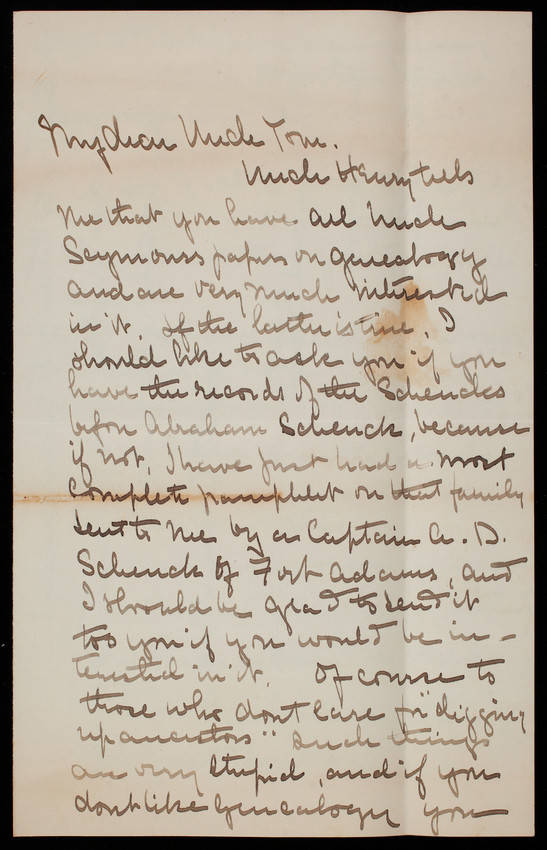 My dear Uncle Tom.
Uncle Henry tells
me that you have all Uncle
Seymour's papers on genealogy
and are very much interested
in it. If the latter is true, I
should like to ask you if you
have the records of the Schencks
before Abraham Schenck, because
if not, I have just had a most
complete pamphlet on that family
sent to me by a Captain A. D.
Schenck of Fort Adams, and
I should be glad to send it
to you if you would be in-
terested in it. Of course to
those who dont care for "digging
up ancestors" such things
are very stupid, and if you
dont like genealogy you